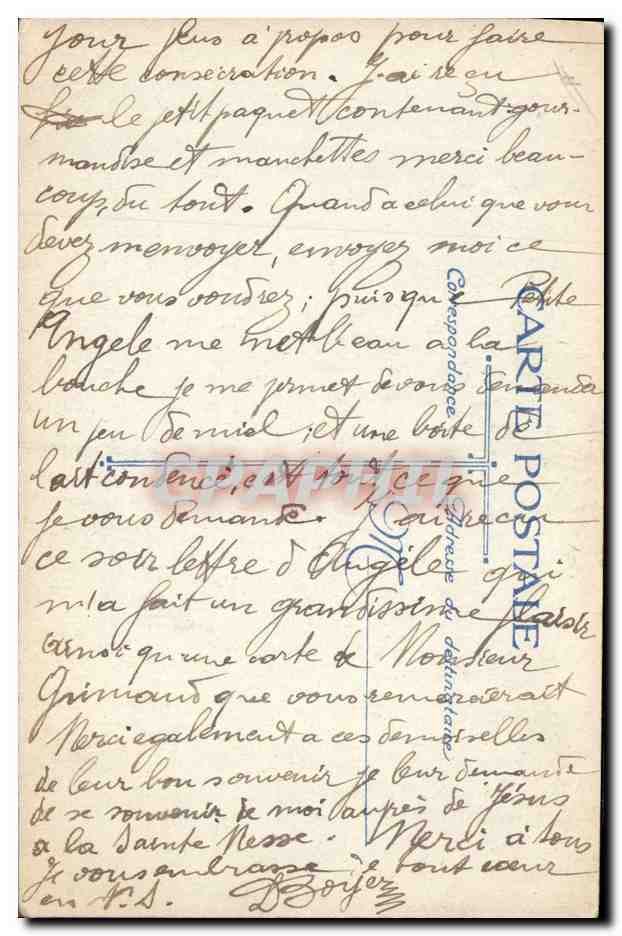 jour plus à propos pour faire
cette consécration. J'ai reçu
le petit paquet contenant gour-
mandise et manchettes merci beau-
coup, du tout. Quand a celui que vous
devez m'envoyer, envoyez moi ce
que vous voudrez; puisque Petite
Angèle me met l'eau a la
bouche je me permet de vous demander
un peu de miel; et une boite de
lait condencé, c'est tout ce que
je vous demande. J'ai recu
ce soir lettre d'Angèle qui
m'a fait un grandissime plaisir
ainsi qu'une carte de Monsieur
Grimaud que vous remercierait
Merci egalement a ces demoiselles
de leur bon souvenir je leur demande
de se souvenir de moi auprès de Jésus
a la Sainte Messe. Merci à tous
Je vous embrasse de tout cœur
en N.S. D Boyer
CARTE POSTALE
Correspondance
Adresse du destinataire
M
CPAPHIL